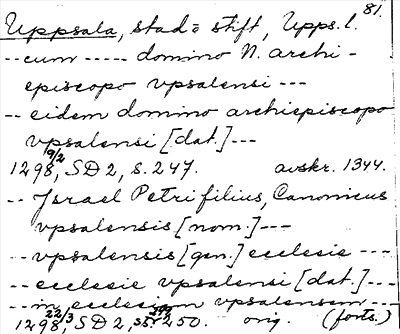 81.
Uppsala, stad o stift, Upps. l.
-- cum ----- domino N. archi-
episcopo vpsalensi ---
-- eidem domino archiepiscopo
vpsalensi [dat.] ---
1298 9/2, SD 2, s. 247. avskr. 1344.
-- Israel Petri filius, Canonicus
vpsalensis [nom.] ---
-- vpsalensis [gen.] ecclesie ---
-- ecclesie vpsalensi [dat.] ---
-- in ecclesiam vpsalensem --
1298 22/3, SD 2, s. 250. orig. (forts.)